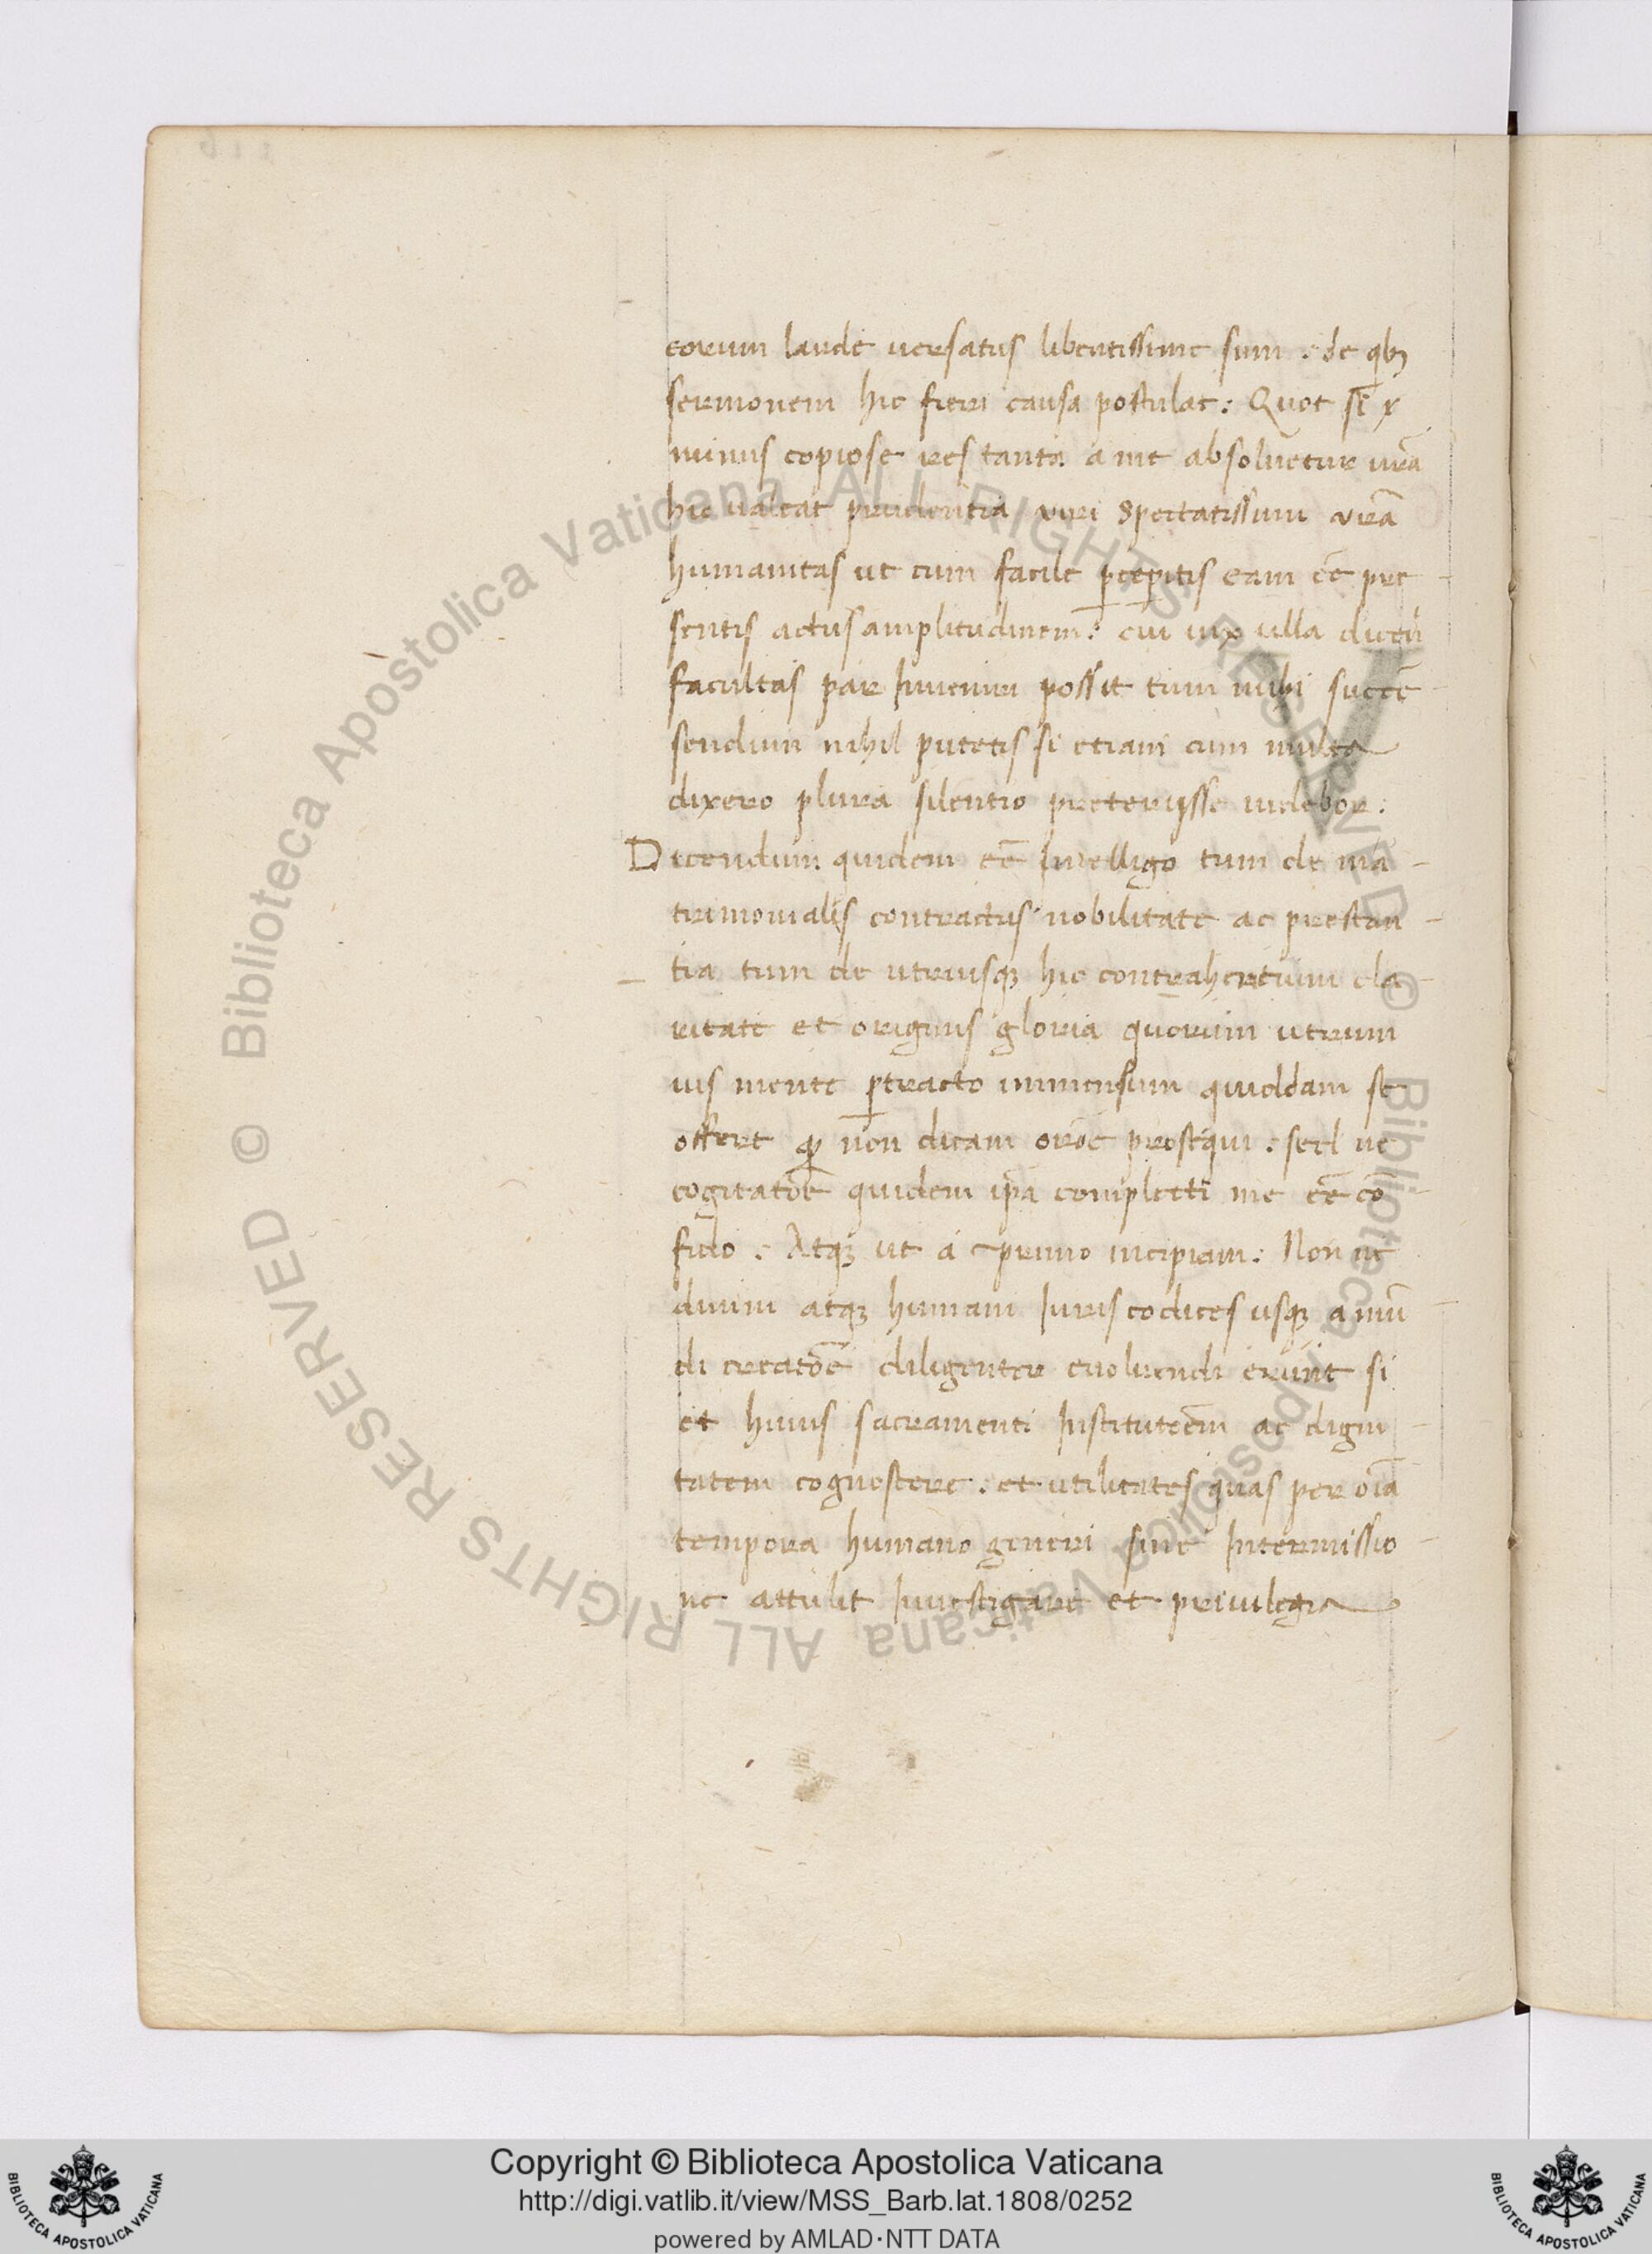 eorum laude uersatus libentissime sum : de qbȝ
sermonem hic fieri causa postulat : Quot si
minus copiose res tanta a me absoluetur urā
hic ualeat prudentia uiri spectatissimi urā
humanitas ut cum facile ꝑcepitis eam eē pre-
sentis actus amplitudinem : cui uix ulla dicen
facultas par Inueniri possit tum mihi succē-
sendum nihil putetis si etiam cum multa
dixero plura silentio preterijsse uidebor :
Dicendum quidem eē Intelligo tum de ma-
trimonialis contractus nobilitate ac prestan-
tia tum de utriusqȝ hic contrahentium cla-
ritate et originis gloria quorum utrum
uis mente ꝑtracto immensum quiddam se
offert non dicam orōe prosequi : sed ne
cogitatōe quidem ipā complecti me eē cō-
fido : Atqȝ ut a primo incipiam : Non ne
diuini atqȝ humani Iuris codices usqȝ a mū-
di creatōe diligenter euoluendi erunt si
et huius sacramenti Institutōem ac digni-
tatem cognoscere : et utilitates quas per oīa
tempora humano generi sine Intermissio-
ne attulit Inuestigare et priuilegia
Copyright © Biblioteca Apostolica Vaticana
http://digi.vatlib.it/view/MSS_Barb.lat.1808/0252
powered by AMLAD·NTT DATA
BIBLIOTECA APOSTOLICA VATICANA
BIBLIOTECA APOSTOLICA VATICANA
© Biblioteca Apostolica Vaticana ALL RIGHTS RESERVED
© Biblioteca Apostolica Vaticana ALL RIGHTS RESERVED